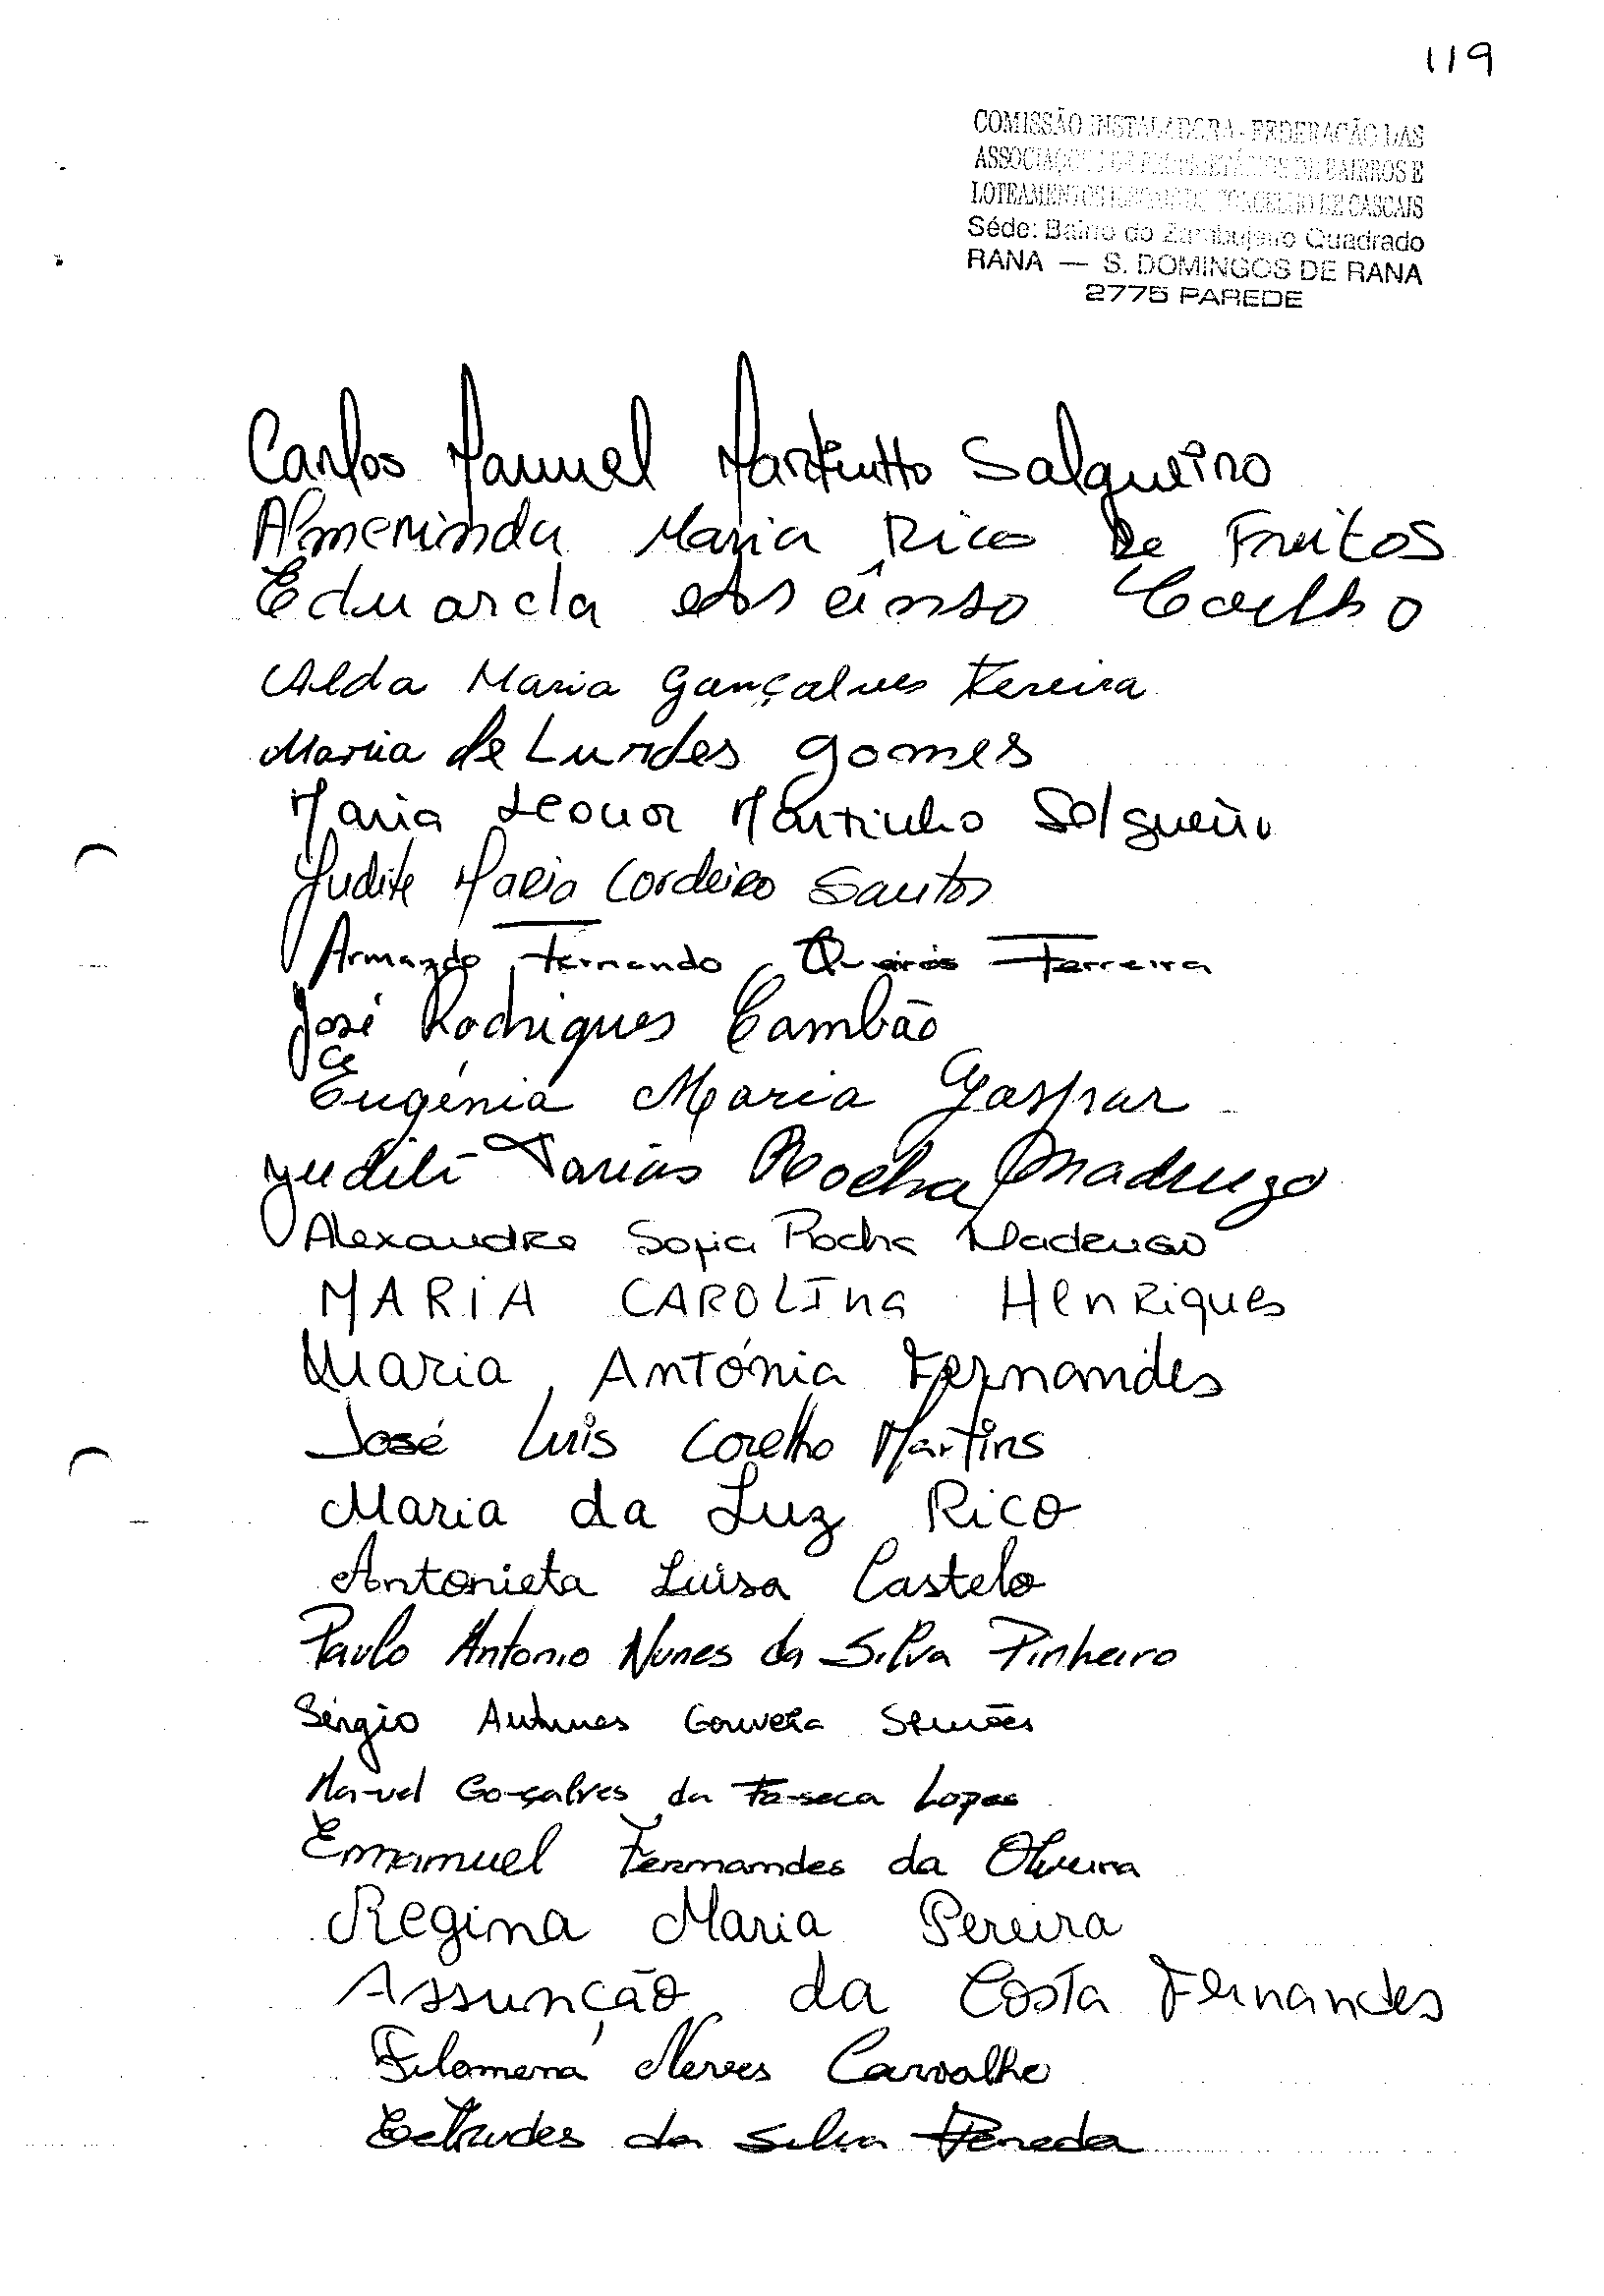 119
COMISSÃO INSTALADORA - FEDERAÇÃO DAS
ASSOCIAÇÕES DE PROPRIETÁRIOS DE BAIRROS E
LOTEAMENTOS DO CONCELHO DE CASCAIS
Séde: Bairro do Zambujeiro Quadrado
RANA — S. DOMINGOS DE RANA
2775 PAREDE
Carlos Manuel Martinho Salgueiro
Almerinda Maria Rico de Freitos
Eduarda Coelho
Alda Maria Gonçalves Pereira
Maria de Lurdes Gomes
Maria Leonor Martinho Salgueiro
Judite Maria Cordeiro Santos
Armando Fernando Queirós Ferreira
José Rodrigues Cambão
Eugénia Maria Gaspar
Judite Farias Rocha Madrugo
Alexandra Sofia Rocha Madrugo
MARIA CAROLINA HenRiques
Maria António Fernandes
José Luis Coelho Martins
Maria da Luz Rico
Antonieta Luisa Castelo
Paulo Antonio Nunes da Silva Pinheiro
Sérgio Antunes Gouveia Simões
Manuel Gonçalves da Fonseca Lopes
Emanuel Fernandes da Oliveira
Regina Maria Pereira
Assunção da Costa Fernandes
Filomena Neves Carvalho
da Silva Peneda